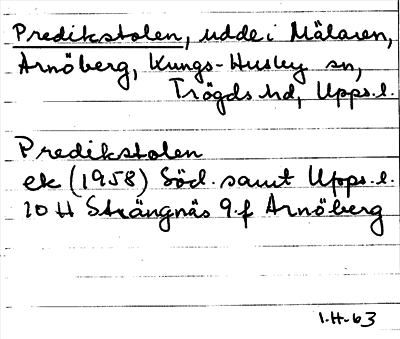 Predikstolen, udde i Mälaren,
Arnöberg, Kungs-Husby sn,
Trögds hd, Upps. l.
Predikstolen
ek (1958) Söd. samt Upps. l.
10 H Strängnäs 9 f Arnöberg
1.H-63